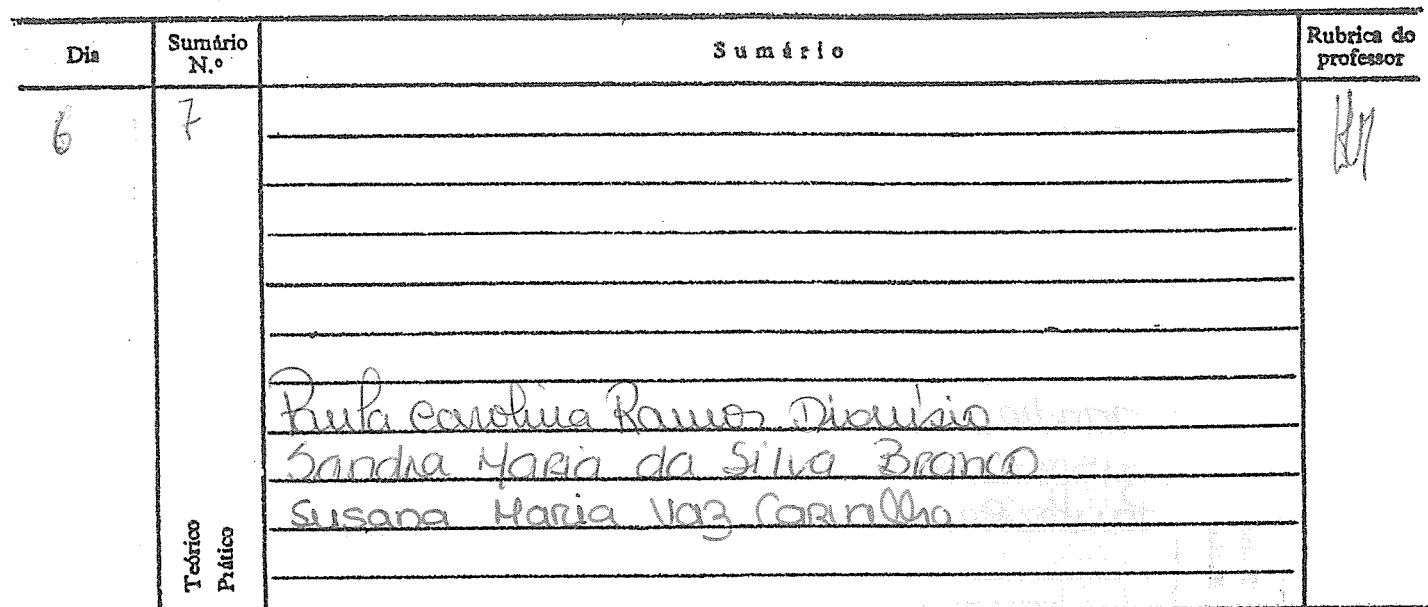 Dia
Sumário N.º
Sumário
Rubrica do professor
6
7
Paula Carolina Ramos Dionísio
Sandra Maria da Silva Branco
Susana Maria Vaz Carrilho
Teórico
Prático